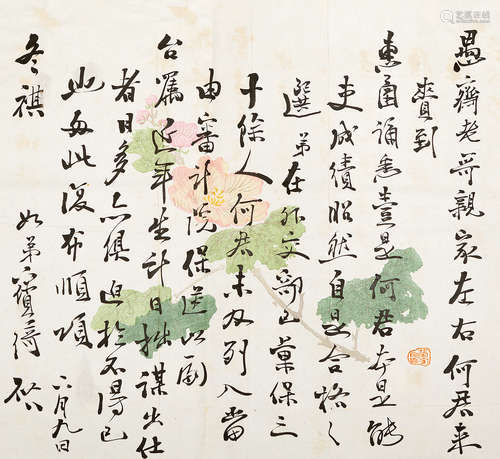 愚齋老哥親家左右何君來
賫到
惠函誦悉壹是何君本是能
吏成績昭然自是合格之
選弟在外交部已彙保三
十餘人何君未及列入當
由審計院保送以副
台屬近年生計日拙謀出仕
者日多亦俱迫於不得已
也每此復布順頌
冬祺
如弟寶 啟
六月九日